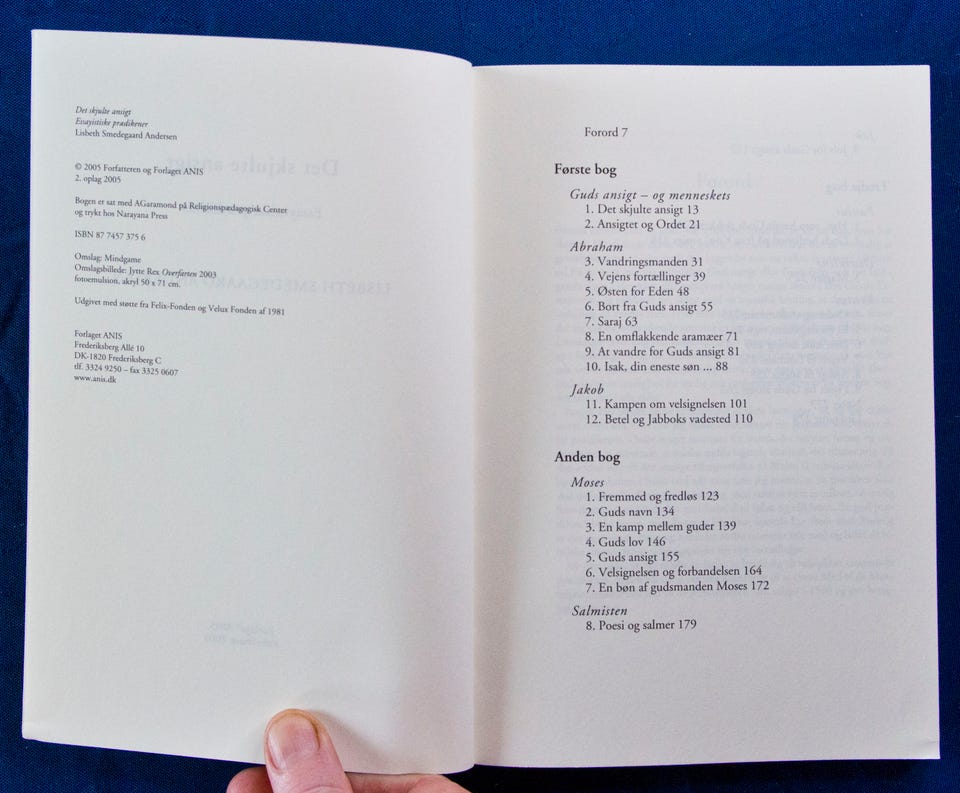 Det skjulte ansigt
Essayistiske prædikener
Lisbeth Smedegaard Andersen
© 2005 Forfatteren og Forlaget ANIS
2. oplag 2005
Bogen er sat med AGaramond på Religionspædagogisk Center
og trykt hos Narayana Press
ISBN 87 7457 375 6
Omslag: Mindgame
Omslagsbillede: Jytte Rex Overfarten 2003
fotoemulsion, akryl 50 x 71 cm.
Udgivet med støtte fra Felix-Fonden og Velux Fonden af 1981
Forlaget ANIS
Frederiksberg Allé 10
DK-1820 Frederiksberg C
tlf. 3324 9250 – fax 3325 0607
www.anis.dk
Forord 7
Første bog
Guds ansigt – og menneskets
1. Det skjulte ansigt 13
2. Ansigtet og Ordet 21
Abraham
3. Vandringsmanden 31
4. Vejens fortællinger 39
5. Østen for Eden 48
6. Bort fra Guds ansigt 55
7. Saraj 63
8. En omflakkende aramæer 71
9. At vandre for Guds ansigt 81
10. Isak, din eneste søn ... 88
Jakob
11. Kampen om velsignelsen 101
12. Betel og Jabboks vadested 110
Anden bog
Moses
1. Fremmed og fredløs 123
2. Guds navn 134
3. En kamp mellem guder 139
4. Guds lov 146
5. Guds ansigt 155
6. Velsignelsen og forbandelsen 164
7. En bøn af gudsmanden Moses 172
Salmisten
8. Poesi og salmer 179